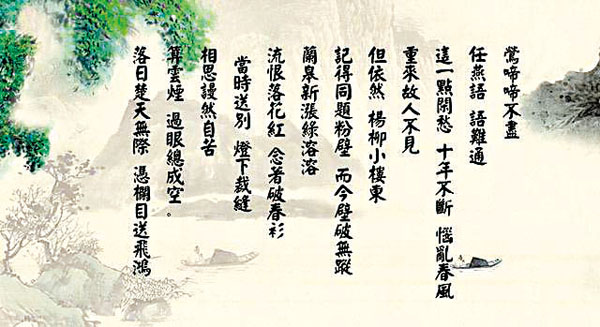 鶯啼啼不盡
任燕語 語難通
這一點閑愁 十年不斷 惱亂春風
重來故人不見
但依然 楊柳小樓東
記得同題粉壁 而今壁破無蹤
蘭皋新漲綠溶溶
流恨落花紅 念著破春衫
當時送別 燈下裁縫
相思謾然自苦
算雲煙 過眼總成空。
落日楚天無際 憑欄目送飛鴻